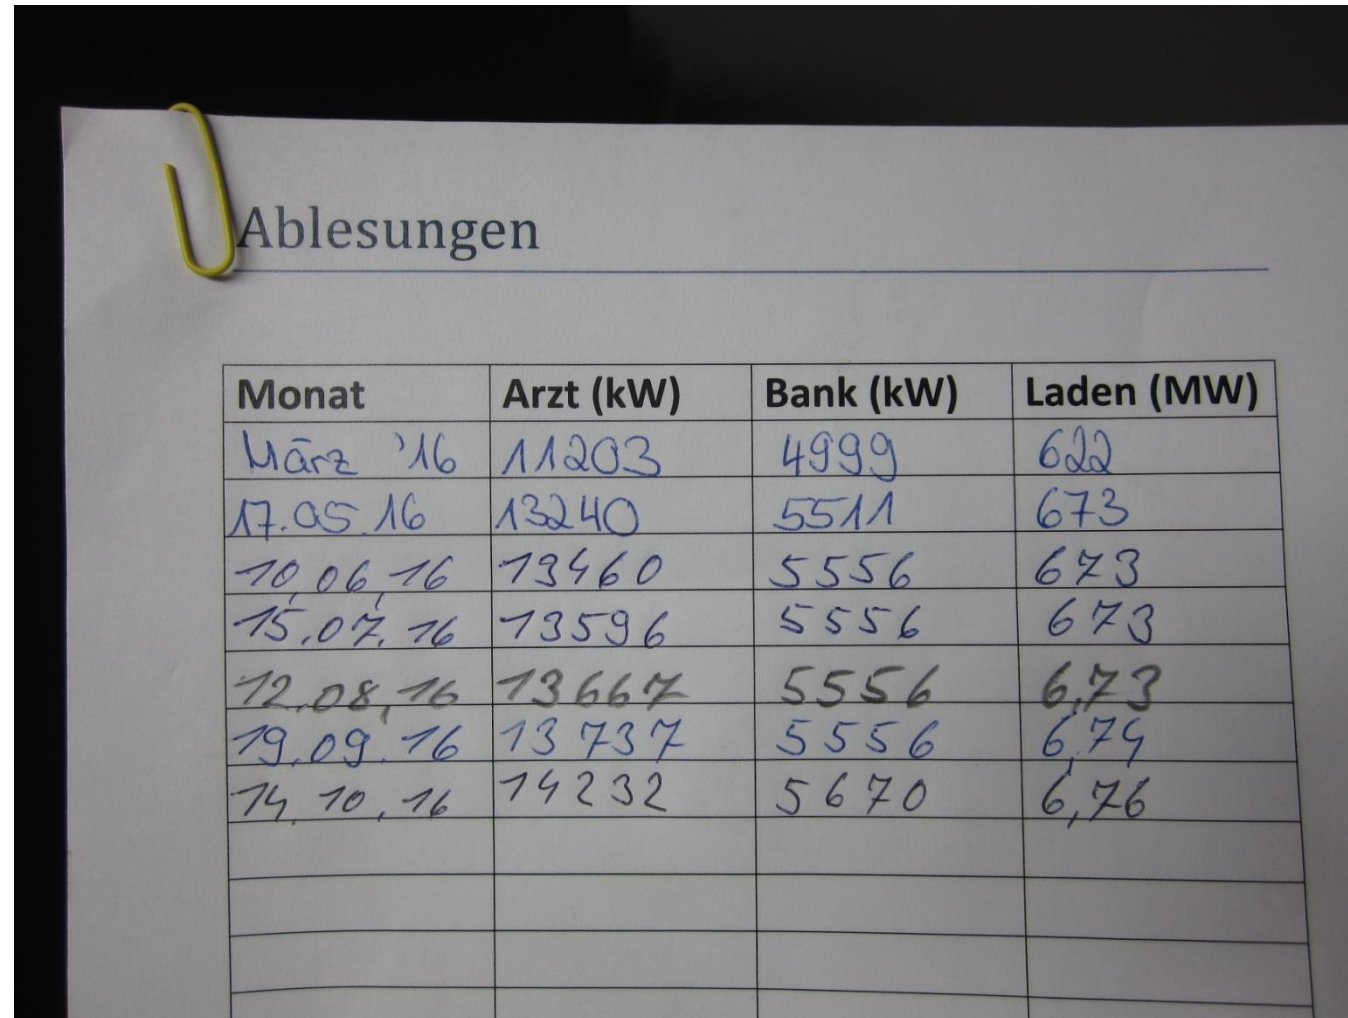 Ablesungen
Monat Arzt (kW) Bank (kW) Laden (MW)
März '16 11203 4999 622
17.05.16 13240 5511 673
10.06.16 13460 5556 673
15.07.16 13596 5556 673
12.08.16 13667 5556 6,73
19.09.16 13737 5556 6,74
14.10.16 14232 5670 6,76